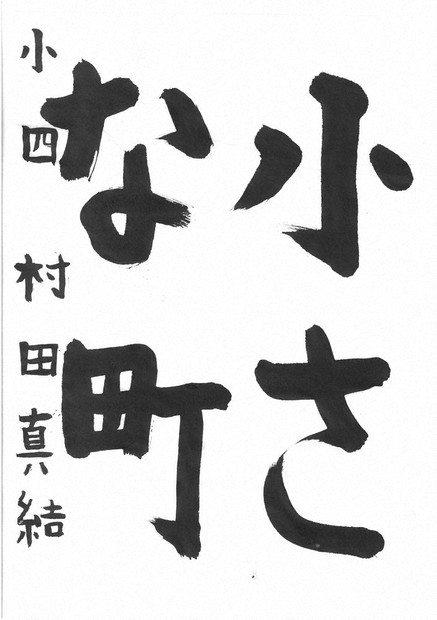 小さ
な町
小四 村田真結